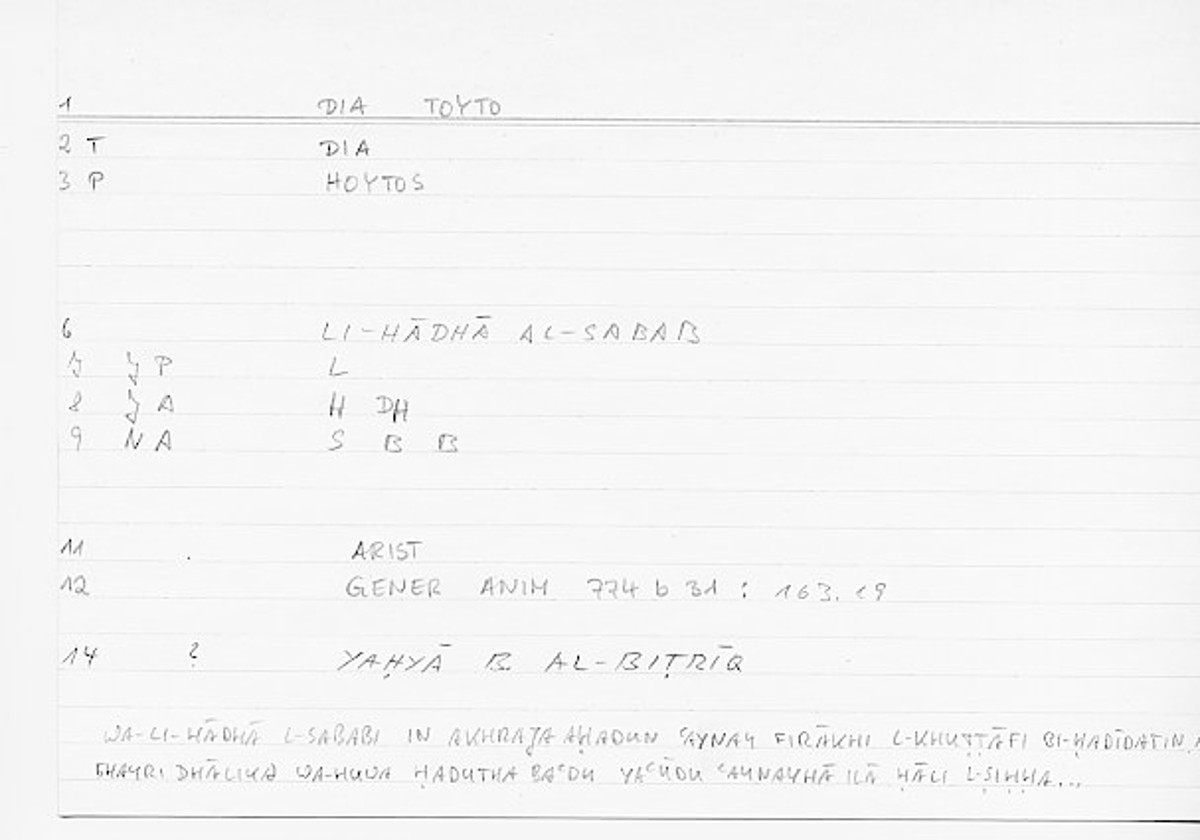 1 DIA TOYTO
2 T DIA
3 P HOYTOS
6 LI-HĀDHĀ AL-SABAB
7 J P L
8 J A H DH
9 N A S B B
11 . ARIST
12 GENER ANIM 774 b 31 : 163.19
14 ? YAḤYĀ B. AL-BIṬRĪQ
WA-LI-HĀDHĀ L-SABABI IN AKHRAJA AḤADUN ʿAYNAY FIRĀKHI L-KHUṬṬĀFI BI-ḤADĪDATIN
GHAYRI DHĀLIKA WA-HUWA ḤADUTHA BAʿDU YAʿŪDU ʿAYNAYHĀ ILĀ ḤĀLI L-ṢIḤḤA...